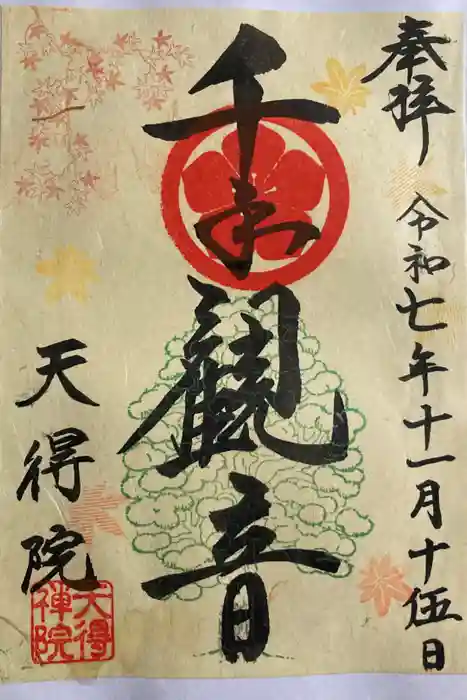 奉拝
令和七年十一月十伍日
千手觀音
天得院
天得禅院